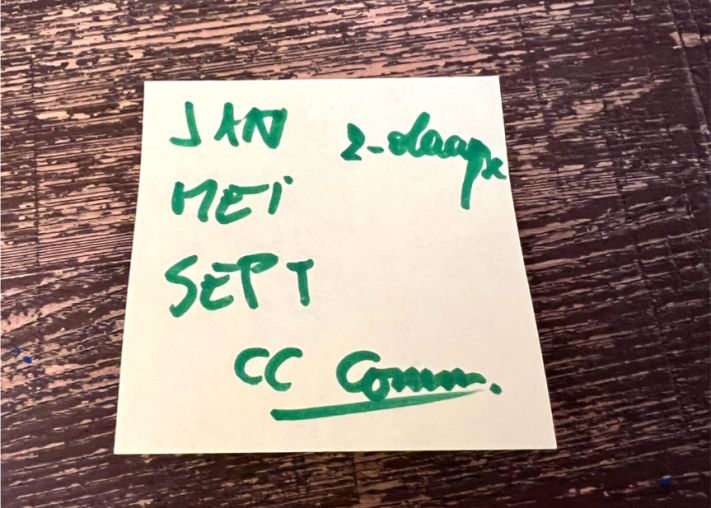 JAN 2-daagse
MEI
SEPT
CC Comm.